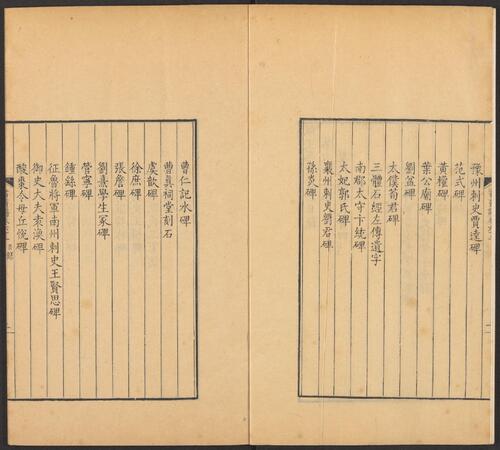 豫州刺史賈逵碑
范式碑
黃權碑
葉公廟碑
劉盆碑
太僕荀君碑
三體石經左傳遺字
南郡太守卞統碑
太妃郭氏碑
襄州刺史劉君碑
孫炎碑
曹仁記水碑
曹真祠堂刻石
虞歆碑
徐庶碑
張詹碑
劉熹學生冢碑
管寧碑
鍾繇碑
征虜將軍南州刺史王賢思碑
御史大夫袁渙碑
酸棗令毋丘悛碑